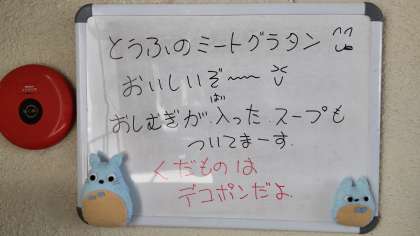 とうふのミートグラタン
おいしいぞ〜〜
おしむぎが入った.スープも
はい
ついてまーす.
くだものは
デコポンだよ.